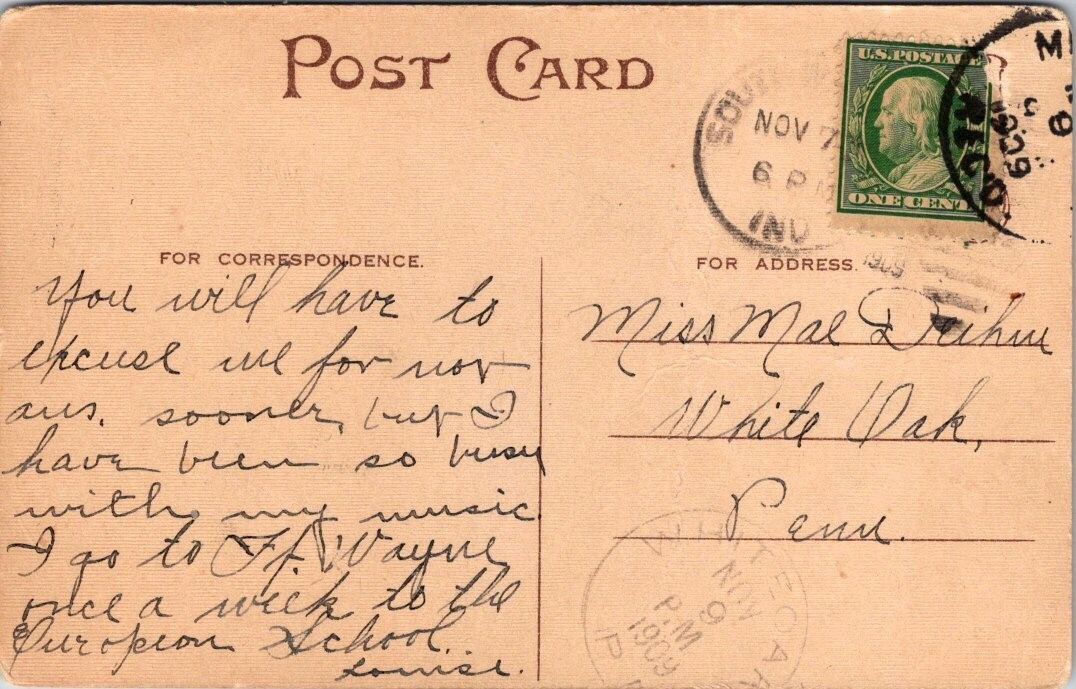 POST CARD
U.S. POSTAGE
ONE CENT
SOUTH
NOV 7
6 P M
IND
1909
REC'D
9
1909
FOR CORRESPONDENCE.
FOR ADDRESS.
You will have to
excuse me for not
ans. sooner, but I
have been so busy
with my music.
I go to Ft. Wayne
once a week to the
European School.
Louise.
Miss Mae Deihm
White Oak,
Penn.
WHITE OAK
NOV
9
P.M
1909